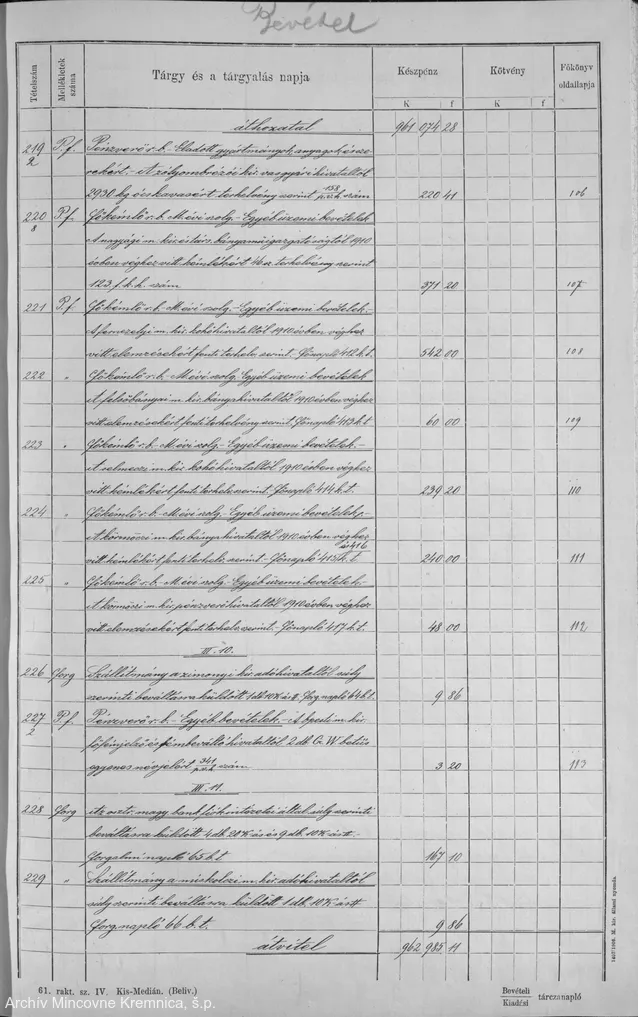 Bevétel
Tételszám
Mellékletek száma
Tárgy és a tárgyalás napja
Készpénz
Kötvény
Főkönyv oldallapja
K f K f
áthozatal 961 074 28
219/2 P.f. Pénzverő r.b. Eladott gyártmányok, anyagok és sze-
rekért.- A zólyombrézói kir. vasgyári hivataltól
2930 kg éskavasért terhelvény szerint 158 p.v.h. szám 220 41 106
220/8 P.f. Főkémlő r.b. M. évi szolg.- Egyéb üzemi bevételek
A nagyági m. kir. és társ. bányaműigazgatóságtól 1910
évben véghez vitt kémlékért 46.a. terhelvény szerint
123. f.k.h. szám 371 20 107
221 P.f. Főkémlő r.b. M. évi szolg.- Egyéb üzemi bevételek.
A fernezelyi m. kir. kohóhivataltól 1910 évben véghez
vitt elemzésekért fenti terhelv. szerint. Főnapló 412 k.t. 542 00 108
222 " Főkémlő r.b.- M. évi szolg.- Egyéb üzemi bevételek
A felsőbányai m. kir. bányahivataltól 1910 évben véghez
vitt elemzésekért fenti terhelvény szerint, Főnapló 413 k.t 60 00 109
223 " Főkémlő r.b.- M. évi szolg.- Egyéb üzemi bevételek.-
A selmeczi m. kir. kohóhivataltól 1910 évben véghez
vitt kémlékért fenti terhelv. szerint.- Főnapló 414 k.t. 239 20 110
224 " Főkémlő r.b.- M. évi szolg.- Egyéb üzemi bevételek,-
A körmöczi m. kir. bányahivataltól 1910 évben véghez
vitt kémlékért fenti terhelv. szerint.- Főnapló 415 és 416 k.t 240 00 111
225 " Főkémlő r.b.- M. évi szolg.- Egyéb üzemi bevételek,-
A körmöczi m. kir. pénzverőhivataltól 1910 évben véghez
vitt elemzésekért fenti terhelv. szerint.- Főnapló 417 k.t. 48 00 112
III. 10.
226 Forg Szállítmány a zimonyi kir. adóhivataltól súly
szerinti beváltásra küldött 1 db 10 K ért. Forg. napló 64 k.t. 9 86
227/2 P.f. Pénzverő r.b.- Egyéb bevételek.- A bpesti m. kir.
főfémjelző és fémbeváltó hivataltól 2 db G.W betűs
egyenes névjelért 341 p.v.h. szám 3 20 113
III. 11.
228 Forg Az osztr. magy. bank fiókintézetei által súly szerinti
beváltásra küldött 4 db 20 K ás és 9 db. 10 K ásért.-
Forgalmi napló 65 k.t 167 10
229 " Szállítmány a miskolczi m. kir. adóhivataltól
súly szerinti beváltásra küldött 1 db. 10 K ásért
Forg. napló 66. k.t. 9 86
átvitel 962 985 11
61. rakt. sz. IV. Kis-Medián. (Beliv.)
Bevételi
Kiadási
tárczanapló
Archív Mincovne Kremnica, š.p.